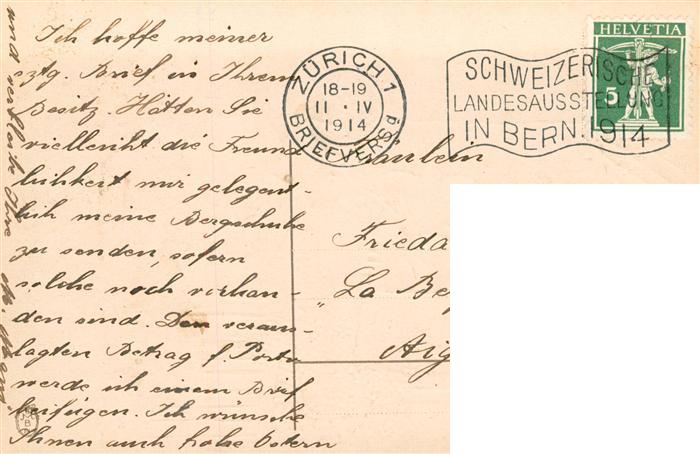 Ich hoffe meiner
ztg. Brief in Ihrem
Besitz. Hätten Sie
vielleicht die Freund
lichkeit mir gelegent-
lich meine Bergschuhe
zu senden, sofern
solche noch vorhan-
den sind. Den veraus-
lagten Betrag f. Porto
werde ich einem Brief
beifügen. Ich wünsche
Ihnen auch frohe Ostern
und verbleibe Ihre
ZÜRICH 1
18-19
11 · IV
1914
BRIEFVERSd
SCHWEIZERISCHE
LANDESAUSSTELLUNG
IN BERN. 1914
HELVETIA
5
Fräulein
Frieda
"La Be
Aig